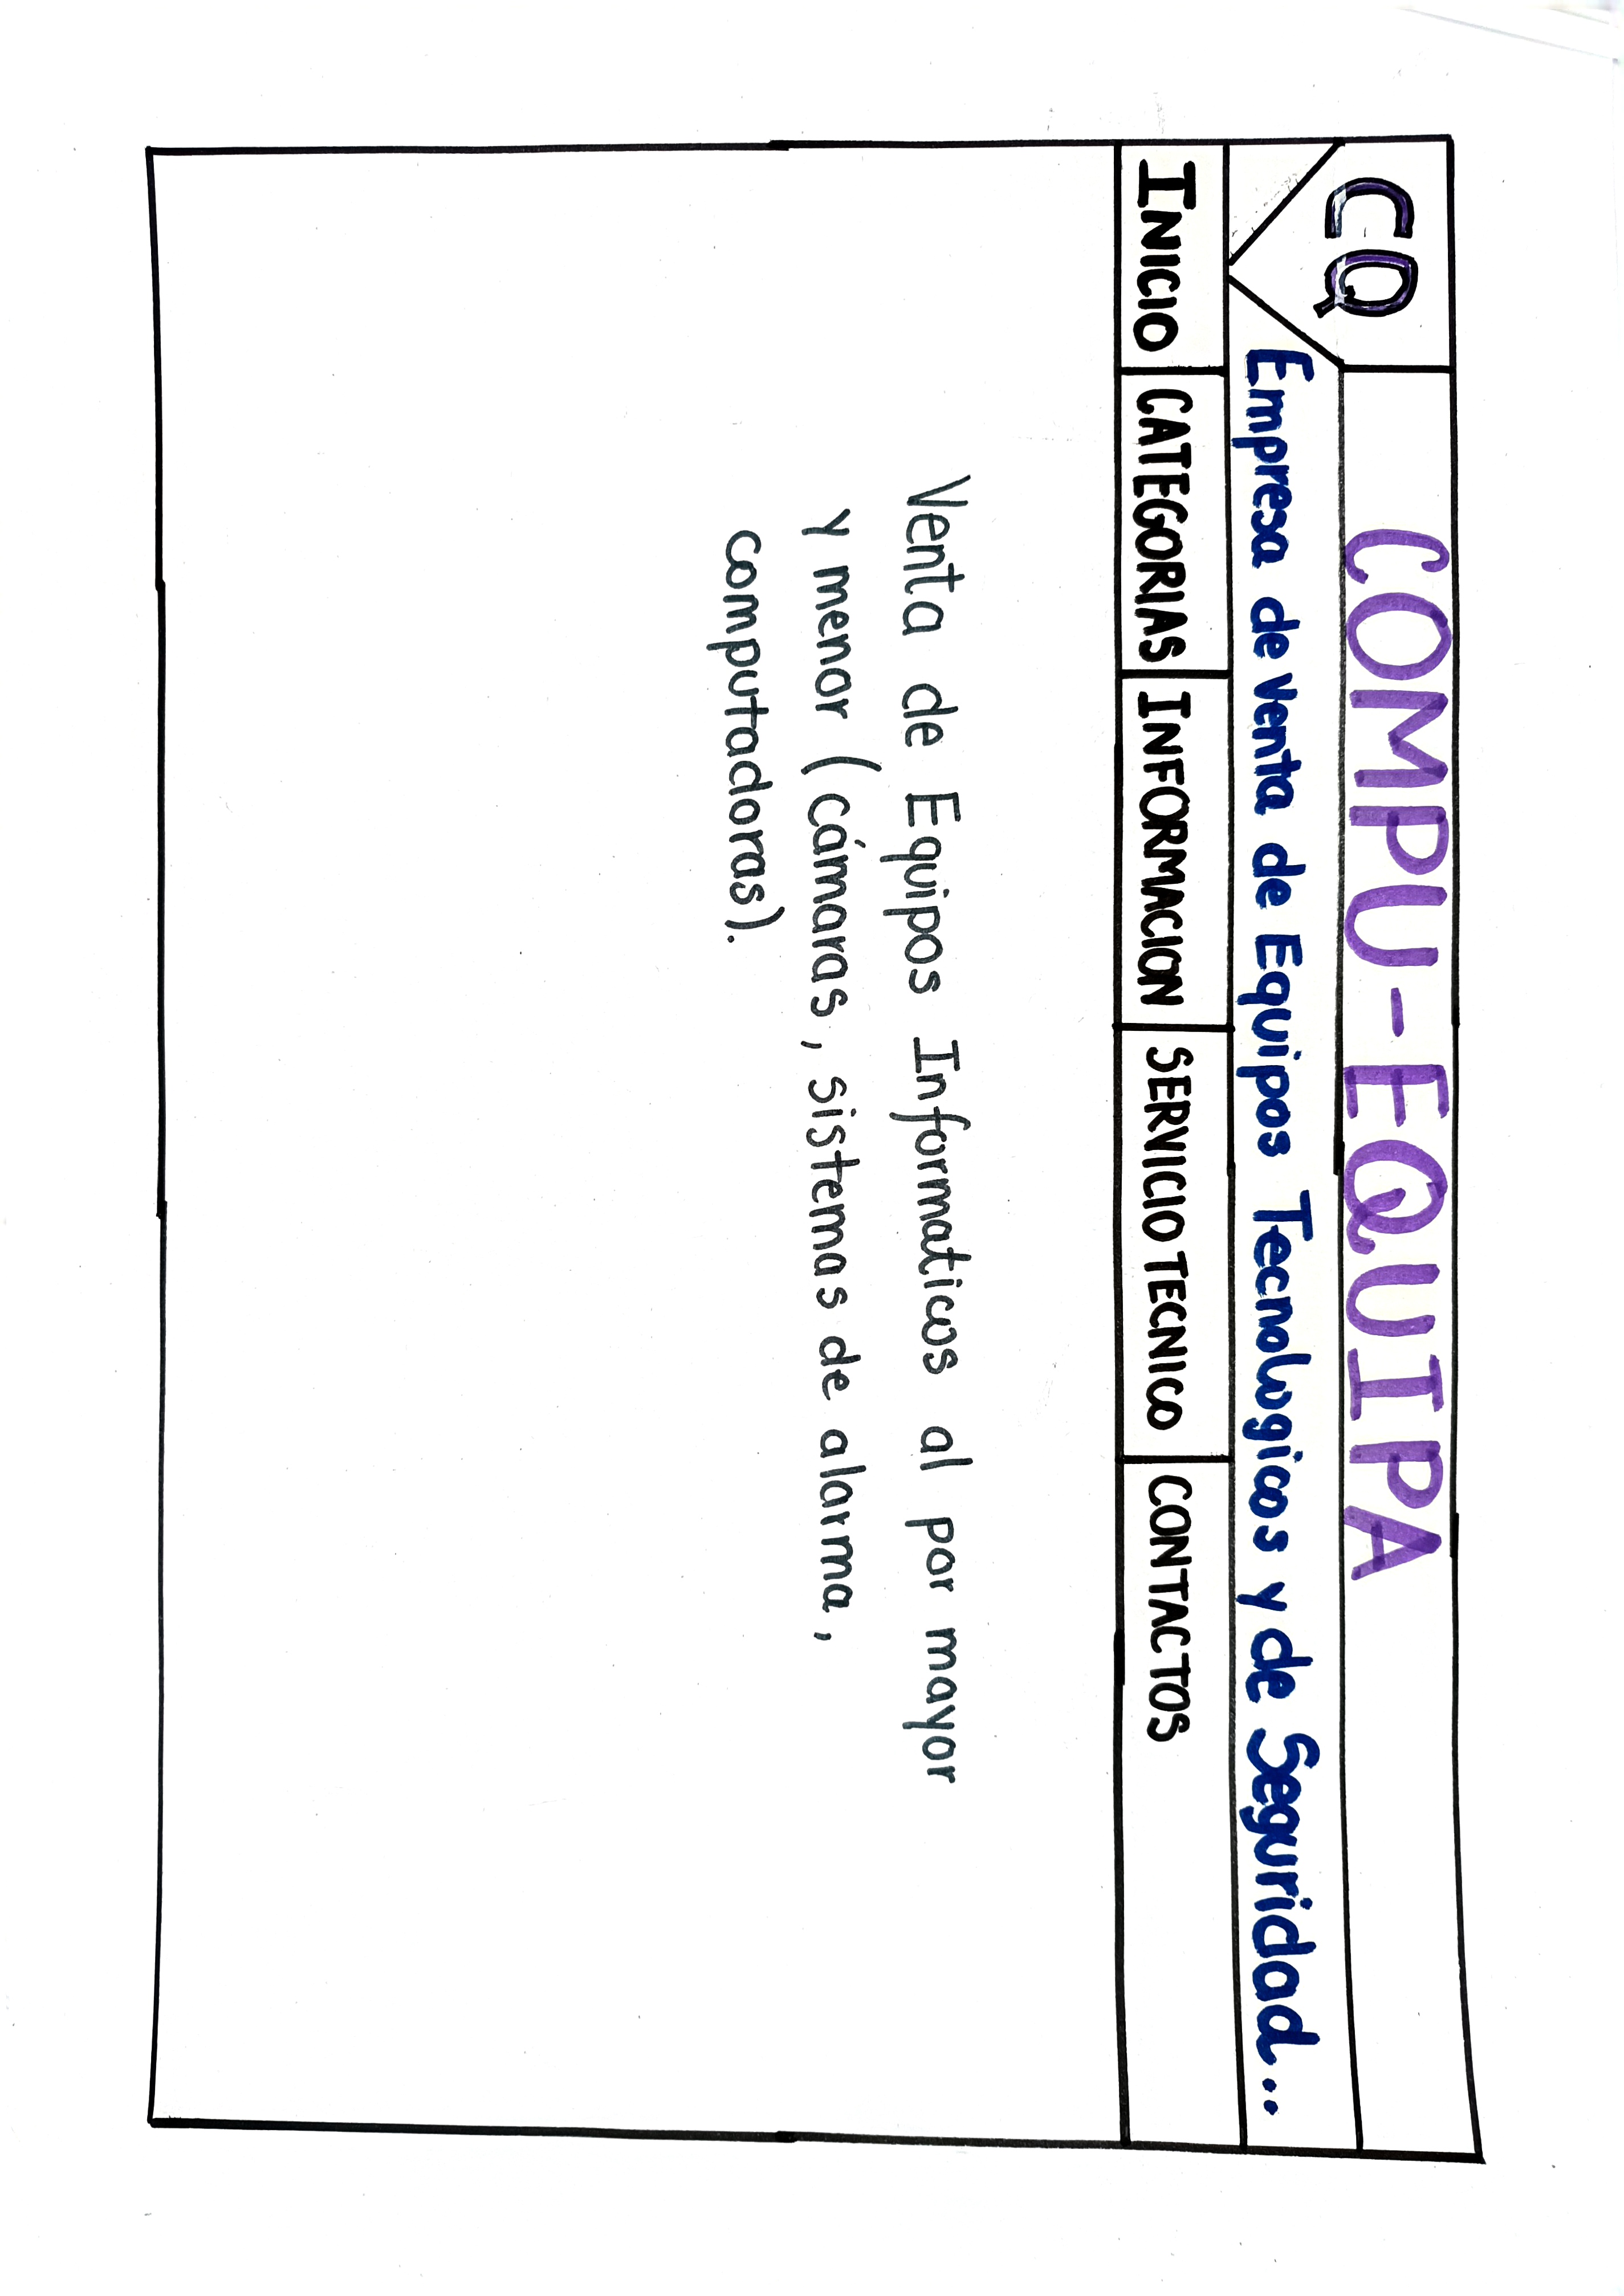 CQ
COMPU-EQUIPA
Empresa de Venta de Equipos Tecnologicos y de Seguridad...
INICIO
CATEGORIAS
INFORMACION
SERVICIO TECNICO
CONTACTOS
Venta de Equipos Informaticos al por mayor
y menor (cámaras, sistemas de alarma,
computadoras).